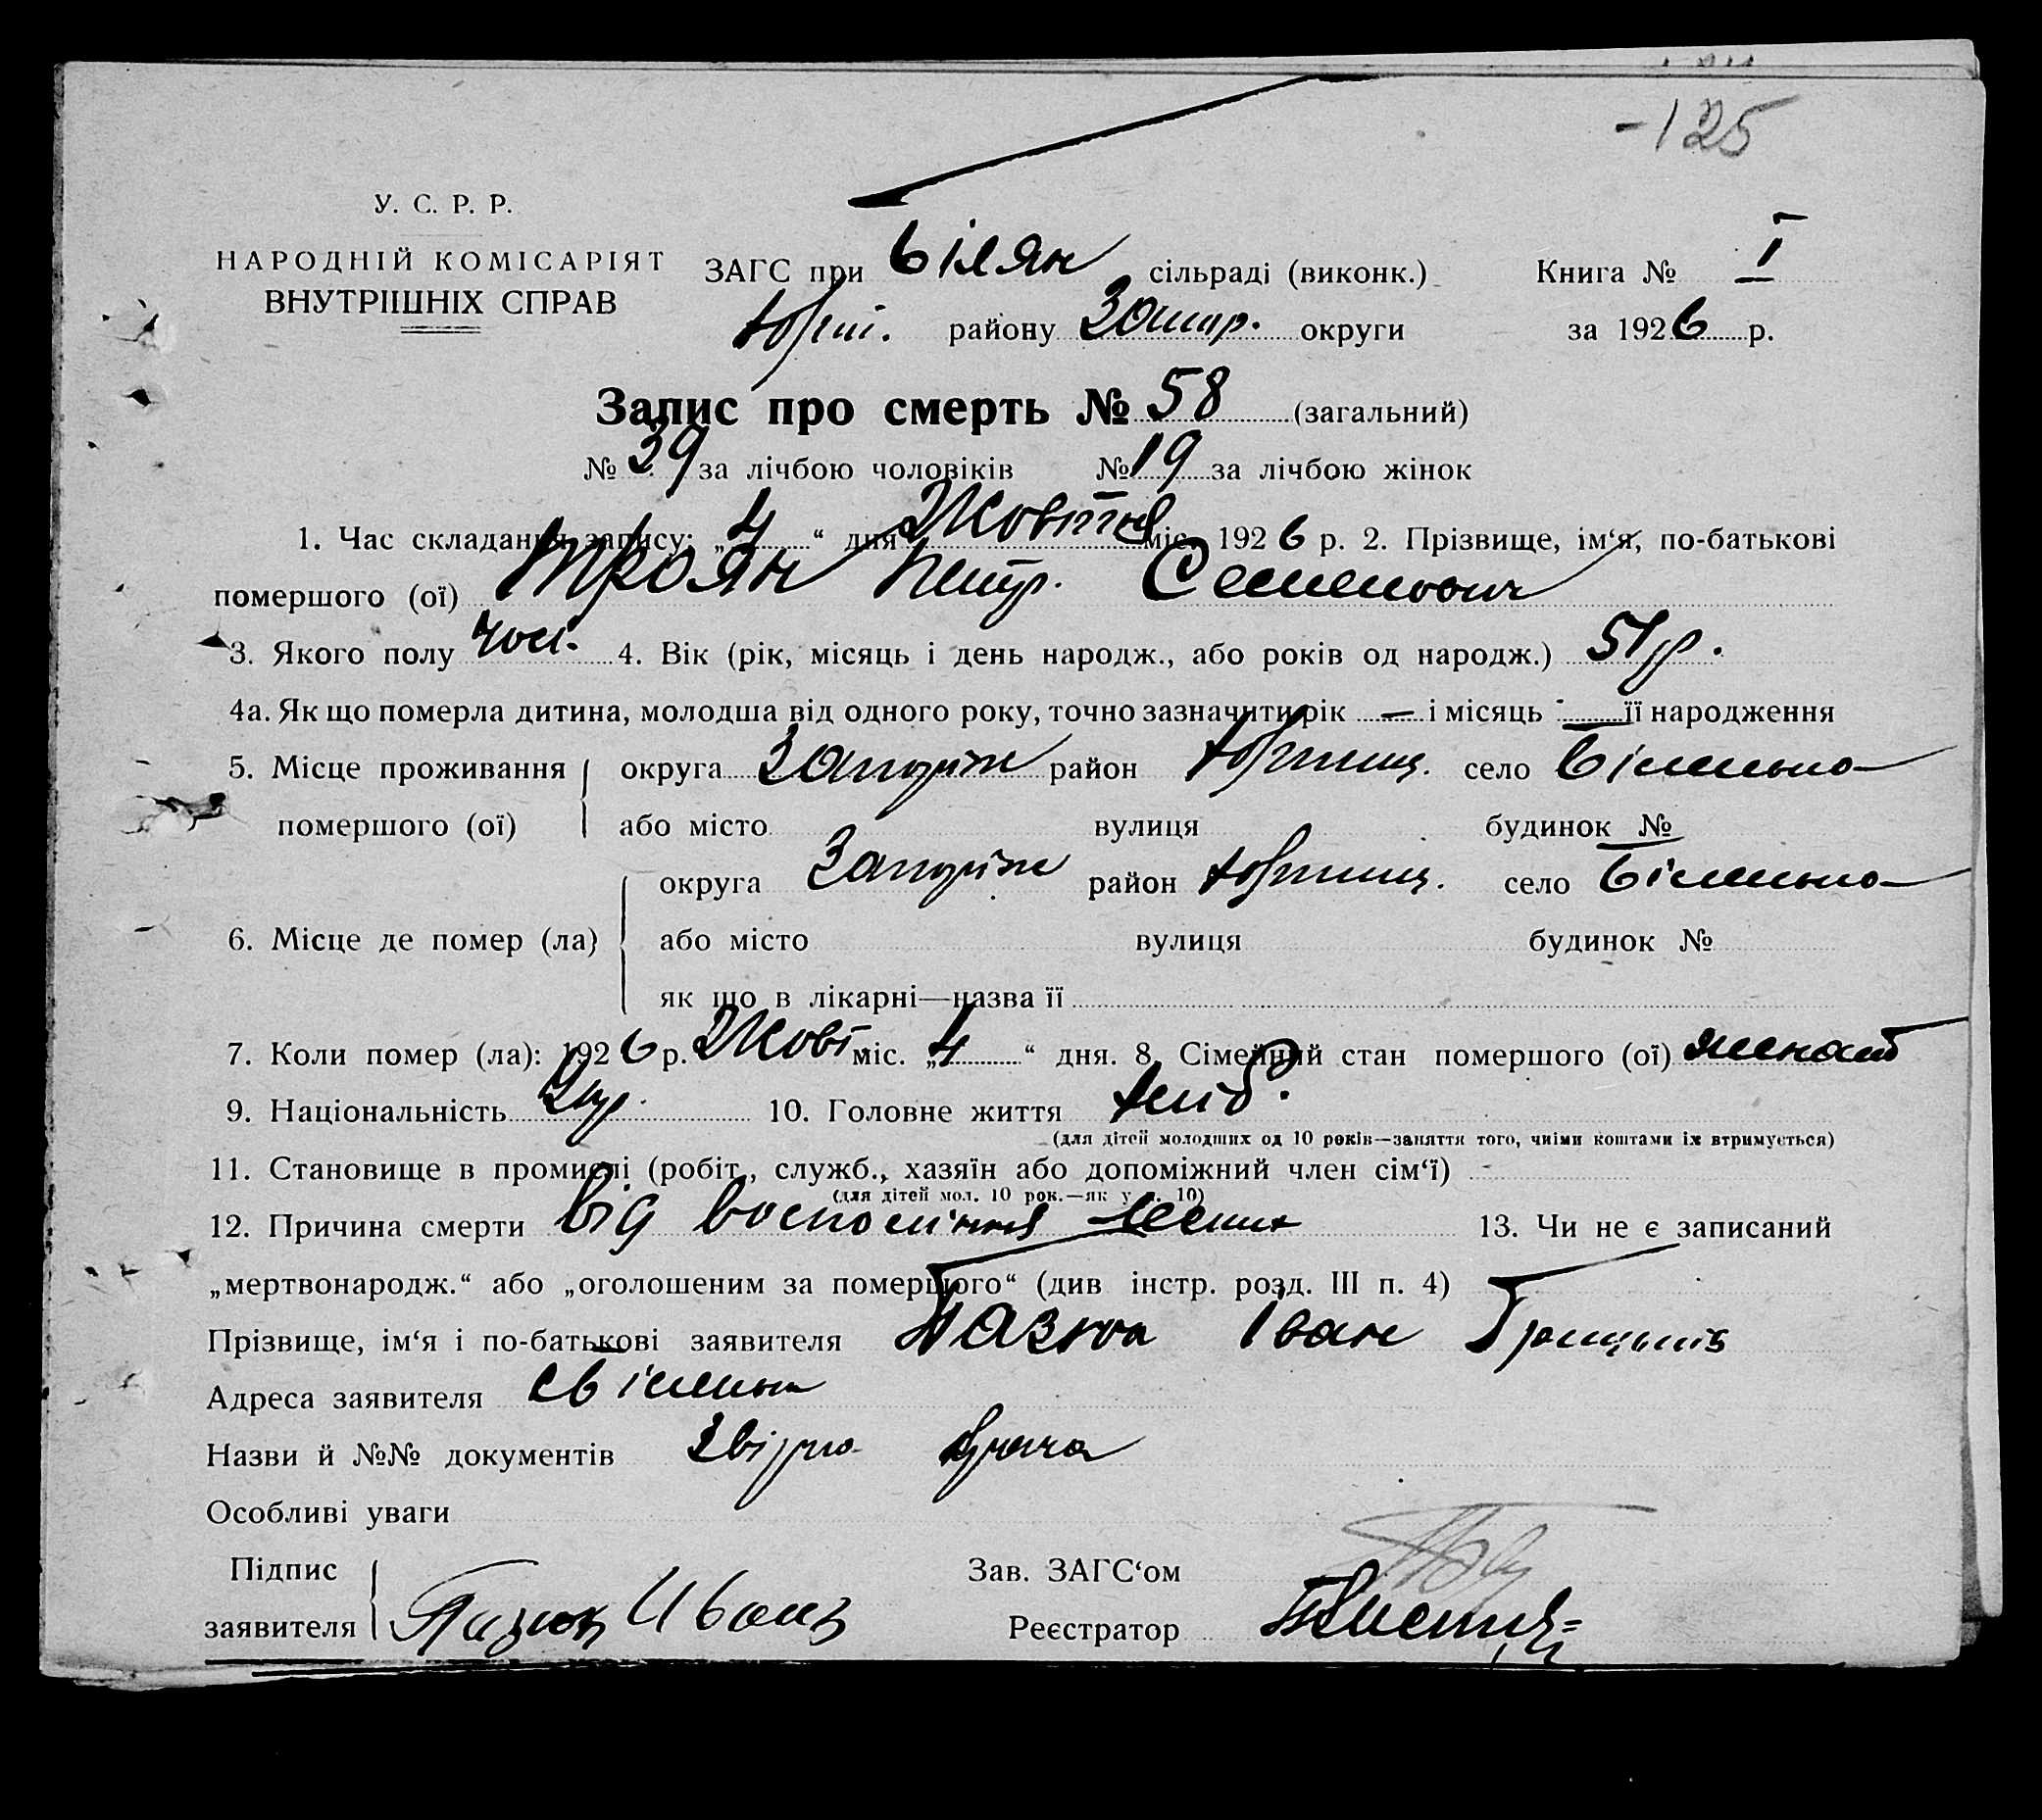 -125
У. С. Р. Р.
НАРОДНІЙ КОМІСАРІЯТ
ВНУТРІШНІХ СПРАВ
ЗАГС при Білян сільраді (виконк.) Книга № I
району округи за 1926 р.
Запис про смерть № 58 (загальний)
№ 39 за лічбою чоловіків № 19 за лічбою жінок
1. Час складання запису: „4“ дня Жовтня міс. 1926 р. 2. Прізвище, ім‘я, по-батькові
помершого (ої) Троян Петр. Семенович
3. Якого полу чол. 4. Вік (рік, місяць і день народж., або років од народж.) 51 р.
4а. Як що померла дитина, молодша від одного року, точно зазначити рік — і місяць — її народження
5. Місце проживання округа Запоріж район село Біленько
помершого (ої) або місто вулиця будинок №
округа Запоріж район село Біленько
6. Місце де помер (ла) або місто вулиця будинок №
як що в лікарні—назва її
7. Коли помер (ла): 1926 р. Жовт. міс. „4“ дня. 8. Сімейний стан помершого (ої) женат
9. Національність Укр. 10. Головне життя хліб.
(для дітей молодших од 10 років—заняття того, чиїми коштами їх втримується)
11. Становище в промислі (робіт., служб., хазяїн або допоміжний член сім‘ї) -
(для дітей мол. 10 рок.—як у п. 10)
12. Причина смерти від воспоління 13. Чи не є записаний
„мертвонародж.“ або „оголошеним за померщого“ (див інстр. розд. III п. 4)
Прізвище, ім‘я і по-батькові заявителя Пазюк Іван
Адреса заявителя
Назви й №№ документів врача
Особливі уваги
Підпис Зав. ЗАГС‘ом
заявителя Пазюк Иван Реєстратор